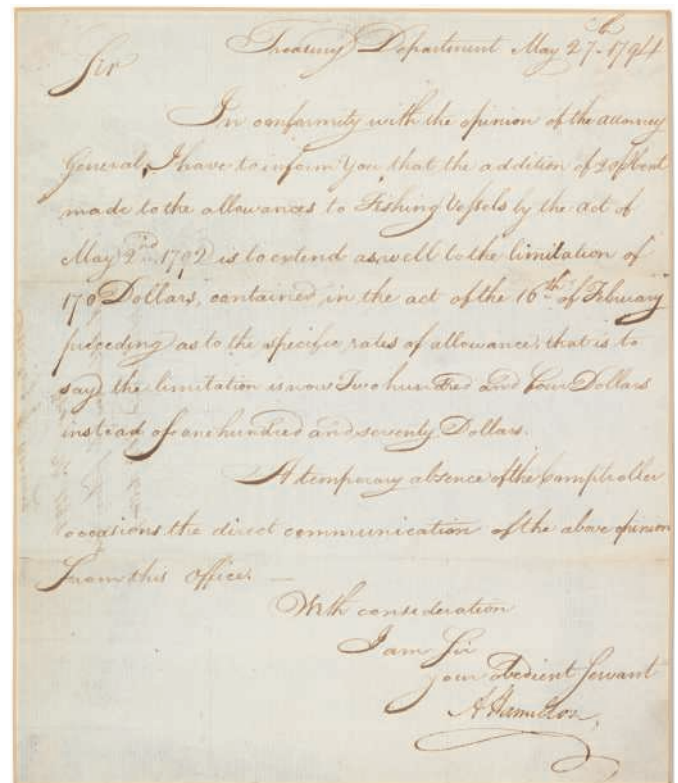 Treasury Department May 27th 1794
Sir
In conformity with the opinion of the attorney
General, I have to inform You that the addition of 20 # Cent
made to the allowances to Fishing Vessels by the act of
May 2nd 1792 is to extend as well to the limitation of
170 Dollars, contained in the act of the 16th of February
preceding as to the specific rates of allowance, that is to
say, the limitation is now Two hundred and four Dollars
instead of one hundred and seventy Dollars.
A temporary absence of the Comptroller
occasions the direct communication of the above opinion
from this office. —
With consideration
I am Sir
your obedient Servant
A Hamilton,